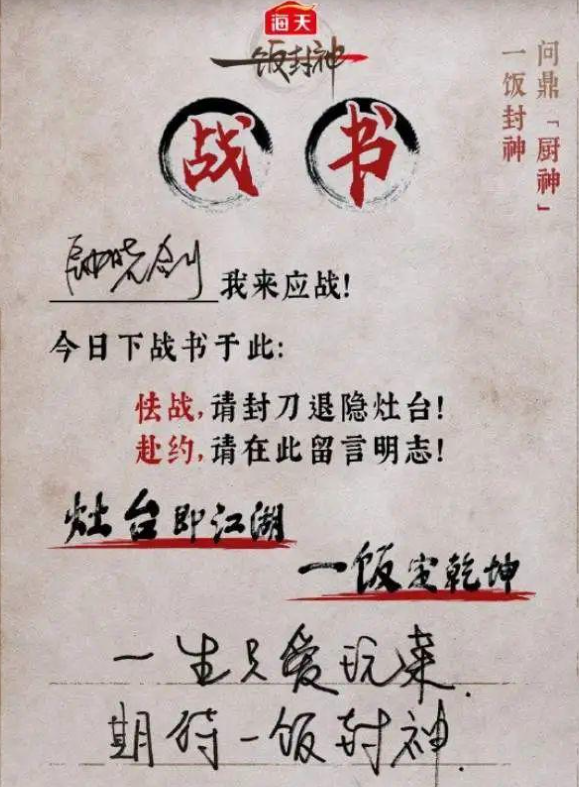 海天
一饭封神
问鼎「厨神」
一饭封神
战书
我来应战!
今日下战书于此:
怯战,请封刀退隐灶台!
赴约,请在此留言明志!
灶台即江湖
一饭定乾坤
一生只爱玩菜.
期待一饭封神.